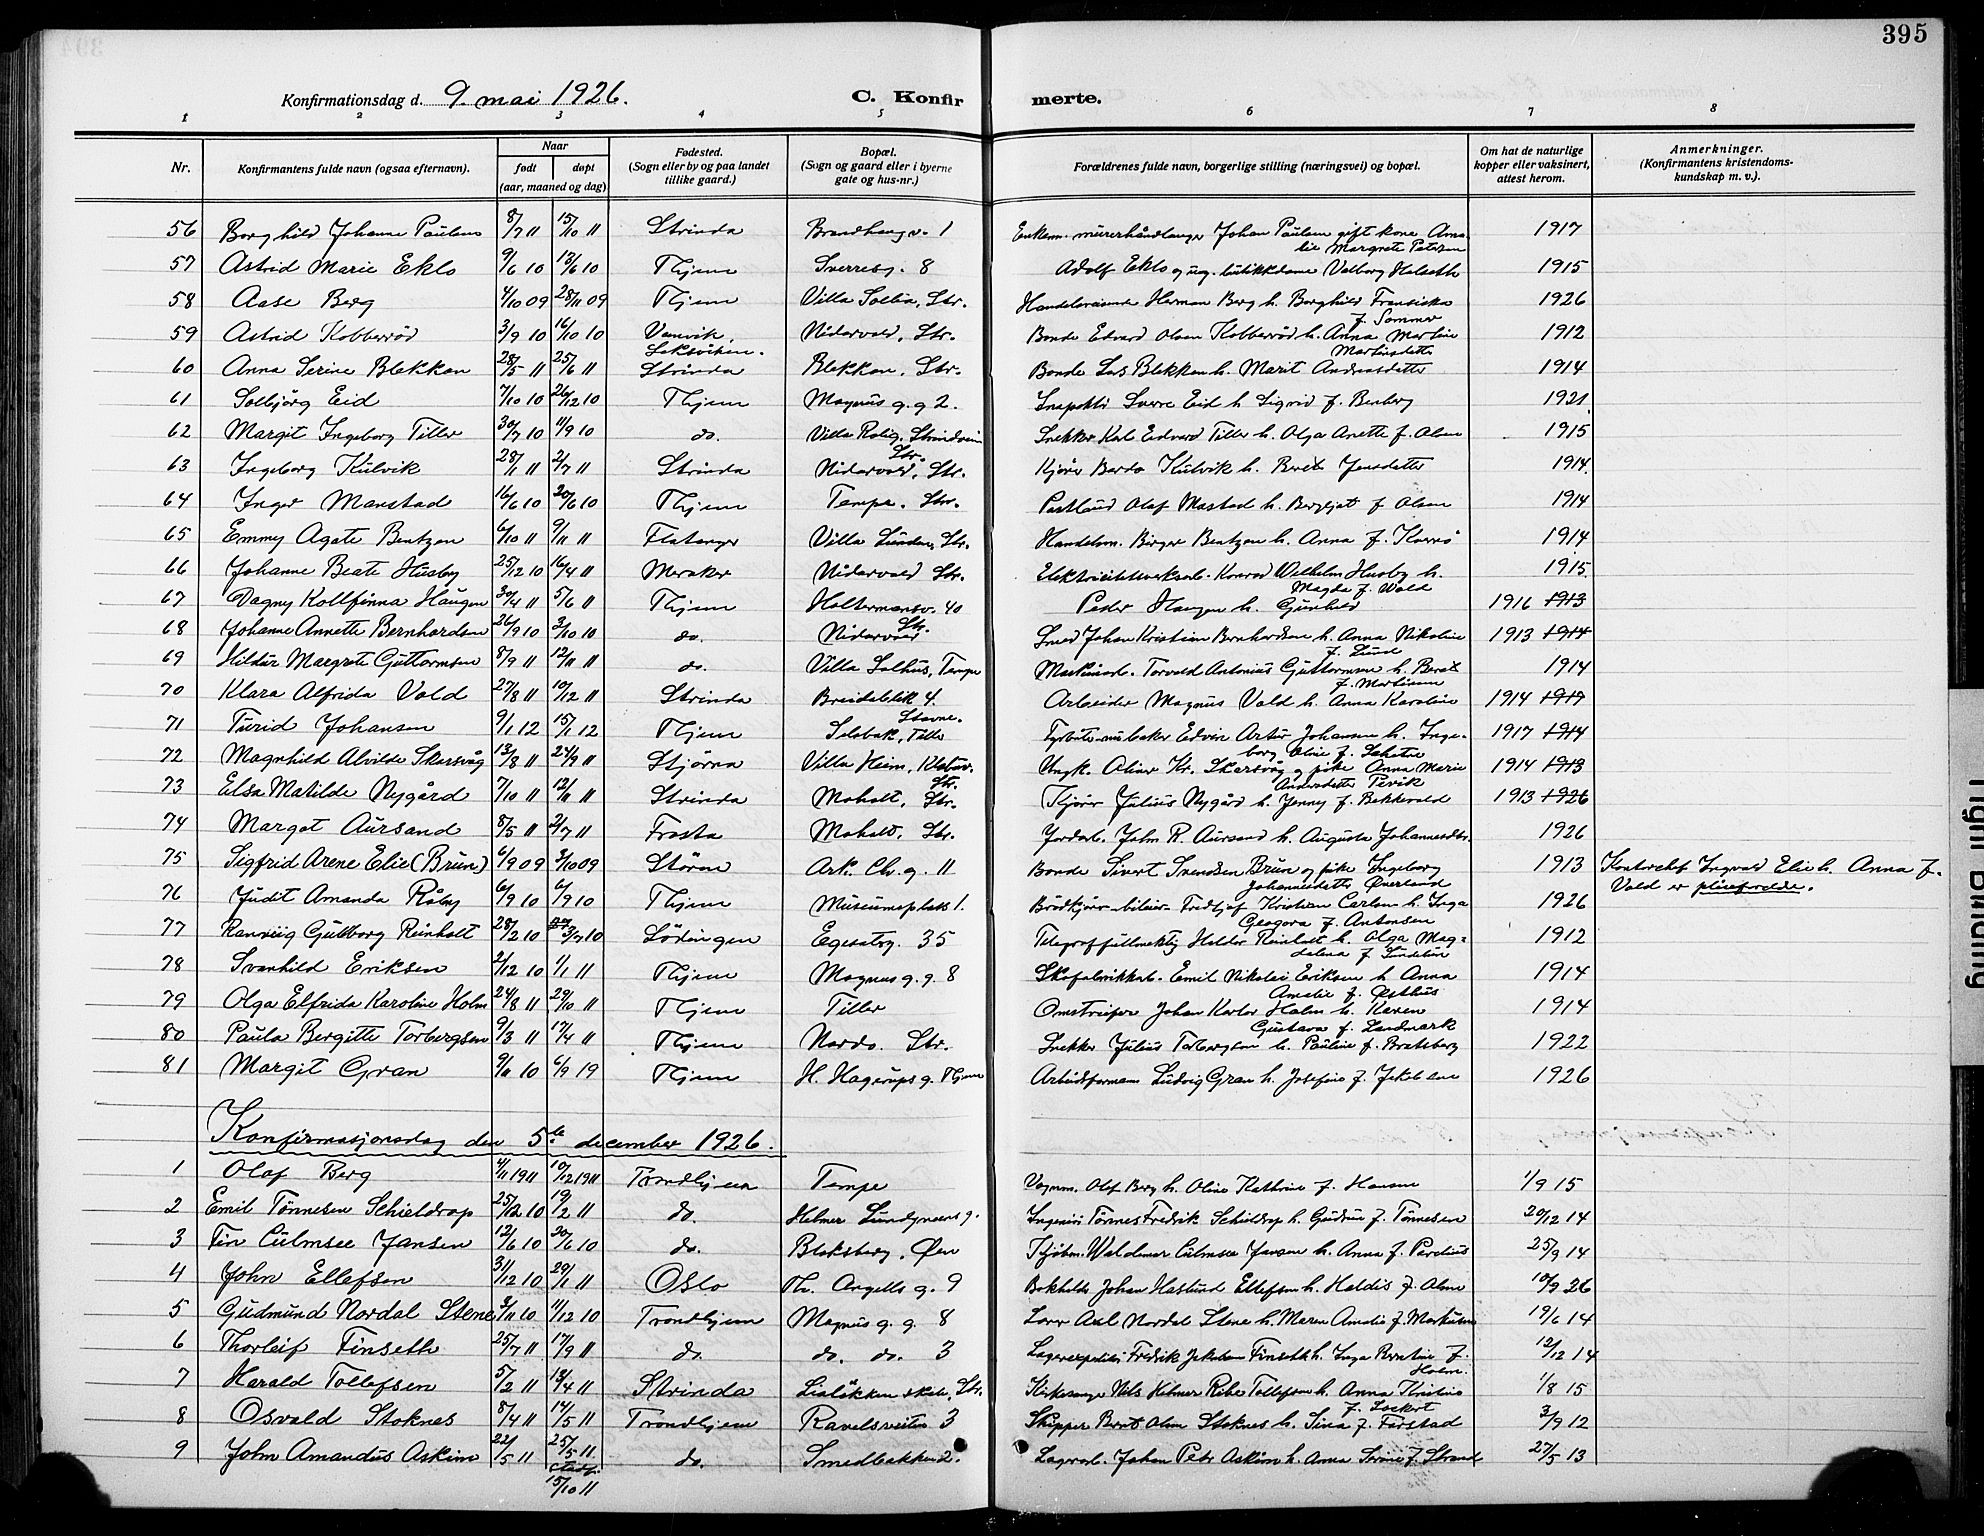 395
Konfirmationsdag d. 9. mai 1926.
C. Konfirmerte.
1 2 3 4 5 6 7 8
Nr.
Konfirmantens fulde navn (ogsaa efternavn).
Naar
født døpt
(aar, maaned og dag)
Fødested.
(Sogn eller by og paa landet
tillike gaard.)
Bopæl.
(Sogn og gaard eller i byerne
gate og hus-nr.)
Forældrenes fulde navn, borgerlige stilling (næringsvei) og bopæl.
Om hat de naturlige
kopper eller vaksinert,
attest herom.
Anmerkninger.
(Konfirmantens kristendoms-
kundskap m. v.).
56 Borghild Johanne Paulsen 8/7 11 15/10 11 Strinda 1 Johan Paulsen gift kone 1917
Margrete Petersen
57 Astrid Marie Eklo 9/6 10 13/6 10 Thjem Sverresg. 8 Adolf Eklo og Valborg 1915
58 Aase Berg 4/10 09 28/11 09 Thjem Villa Solbia, Str. Handelsreisende Herman Berg h. Borghild Fransiska 1926
f. Sommer
59 Astrid Kobberrød 3/9 10 16/10 10 Vanvik, Nidarvold, Str. Bonde Edvard Olsen Kobberrød h. Anna Martine 1912
Leksviken. Martinsdatter
60 Anna Serine Blekkan 28/5 11 25/6 11 Strinda Blekkan, Str. Bonde Lars Blekken h. Marit Andreasdatter 1914
61 Solbjörg Eid 7/10 10 26/12 10 Thjem Magnus g. g 2. Inspektör Sverre Eid h. Sigrid f. Benberg 1921
62 Margit Ingeborg Tiller 30/7 10 11/9 10 do. Villa Rolig, Strindveien Snekker Karl Edvard Tiller h. Olga Anette f. Olsen 1915
Str.
63 Ingeborg Kulvik 28/1 11 2/7 11 Strinda Nidarvold, Str. Kjører Kulvik h. Beret Jensdatter 1914
64 Inger Manstad 16/6 10 20/6 10 Thjem Tempe, Str. Postbud Olaf Mastad h. f. Olsen 1914
65 Emmy Agate Bentzen 6/10 11 9/11 11 Flatanger Villa Lunden, Str. Handelsm. Birger Bentzen h. Anna f. 1914
66 Johanne Beate Husby 25/12 10 16/4 11 Meraker Nidarvold Str. Konrad Wilhelm Husby h. 1915
Magda f. Wold
67 Dagny Kollfinna Haugen 30/4 11 5/6 11 Thjem Holtermansv. 40 Peder Haugen h. Gunhild 1916 1913
Str.
68 Johanne Annette Bernhardsen 26/9 10 3/10 10 do. Nidarvold Smed Johan Kristian Bernhardsen h. Anna Nikoline 1913 1914
f. Lund
69 Hildur Margrete Guttormsen 8/9 11 12/11 11 do. Villa Solhus, Tempe Maskinarb. Torvald Antonius Guttormsen h. Beret 1914
f. Martinsen
70 Klara Alfrida Vold 27/8 11 10/12 11 Strinda Breidablik 4. Arbeider Magnus Vold h. Anna Karoline 1914 1917
Stavne.
71 Turid Johansen 9/1 12 15/1 12 Thjem Selsbak, Tiller Edvin Artur Johansen h. Inge- 1917 1914
borg Oline f.
72 Magnhild Alvilde Skarsvåg 13/8 11 24/9 11 Stjørna Villa Heim, Ungk. Oliver Kr. Skarsvåg og pike Anna Marie 1914 1913
Str. Andersdatter Pervik
73 Elsa Matilde Nygård 7/10 11 12/11 11 Strinda Moholt, Str. Kjører Julius Nygård h. Jenny f. Bekkvold 1913 1926
74 Margot Aursand 8/5 11 2/7 11 Frosta Moholt, Str. Jordarb. John R. Aursand h. Augusta Johannesdtr. 1926
75 Sigfrid Arene Elie (Brun) 6/9 09 3/10 09 Støren Ark. Chr. g. 11 Bonde Sivert Svendsen Brun og pike Ingeborg 1913 Kontorchef Ingvald Elie h. Anna f.
Johannesdatter Øverland Vold er pleieforeldre.
76 Judit Amanda Råby 6/9 10 6/9 10 Thjem Museumsplass 1. Fredtjof Kristian Carlsen h. Inga 1926
Georgora f. Antonsen
77 Ranveig Gullborg Reinholt 28/2 10 3/7 10 Lödingen Egeatrg. 35 Telegraffullmektig Haldor Reinholt h. Olga Mag- 1912
dalena f.
78 Svanhild Eriksen 2/12 10 1/1 11 Thjem Magnus g. g. 8 Skofabrikkarb. Emil Nikolai Eriksen h. Anna 1914
Amalie f. Østhus
79 Olga Elfrida Karoline Holm 24/8 11 29/10 11 Thjem Tiller Johan Karlor Holm h. Karen 1914
Gustava f. Landmark
80 Paula Bergitte Torbergsen 9/3 11 17/4 11 Thjem Nardo. Str. Snekker Julius Torbergsen h. Pauline f. Bratsberg 1922
81 Margit Gran 9/11 10 6/9 19 Thjem H. Hagerups g. Thjem Arbeidsformann Ludvig Gran h. Josefine f. Jakobsen 1926
Konfirmasjonsdag den 5te december 1926.
1 Olaf Berg 4/11 1911 10/12 1911 Trondhjem Tempe Vognm. Olaf Berg h. Oline Kathrine f. Hansen 1/9 15
2 Emil Tønnesen Schieldrop 25/12 10 19/2 11 do. Helmer Lundgreens g. Ingeniør Tønnes Fredrik Schieldrop h. Gudrun f. Tønnesen 20/12 14
3 Fin Culmsee Jansen 12/6 10 20/6 10 do. Bloksberg, Øen Kjøbm. Waldemar Culmsee Jansen h. Anna f. Parelius 25/9 14
4 John Ellefsen 31/12 10 29/1 11 Oslo Th. Angells g. 9 Bokholder Johan Haslund Ellefsen h. Haldis f. Olsen 10/9 26
5 Gudmund Nordal Stene 3/11 10 11/12 10 Trondhjem Magnus g. g. 8 Axel Nordal Stene h. Maren Amalie f. Markussen 19/6 14
6 Thorleif Finseth 25/7 11 17/9 11 do. do. do. 3 Lagerexpeditör Fredrik Jakobsen Finseth h. Inga Berntine f. 12/12 14
Holm.
7 Harald Tollefsen 5/2 11 13/4 11 Strinda Lialökken skole, Str. Kirkesanger Nils Helmer Ribe Tollefsen h. Anna Kristine 1/8 15
f. Lockert
8 Osvald Stoknes 8/4 11 14/5 11 Trondhjem Ravelsveiten 3 Skipper Bernt Olsen Stoknes h. Sina f. Farstad 3/9 12
9 John Amandus Askim 22/5 11 25/5 11. do. Smedbakken 2. Lagerarb. Johan Peter Askim h. Anna Serine f. Strand 27/5 13
stadf.
15/10 11